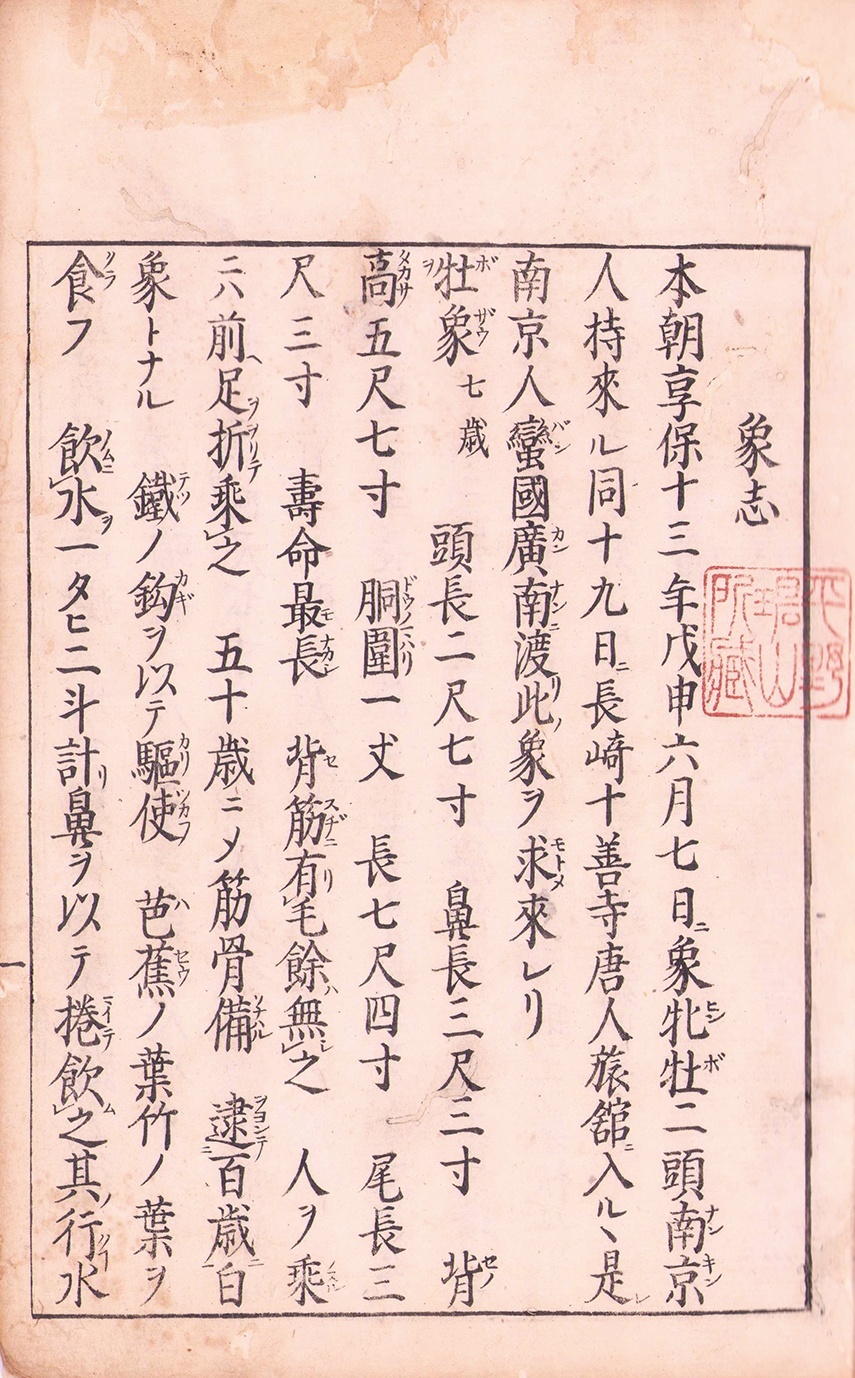 象志
本朝享保十三年戊申六月七日ニ象牝牡二頭南京
人持來ル同十九日ニ長崎十善寺唐人旅舘ニ入ルヽ是レ
南京人蠻國廣南ニ渡リ此ノ象ヲ求來レリ
牡象 七歳 頭長二尺七寸 鼻長三尺三寸 背ノ
高五尺七寸 胴圍一丈 長七尺四寸 尾長三
尺三寸 壽命最長 背筋ニ有リ毛餘ハ無シ之 人ヲ乘
ニハ前ヘ足ヲ折テ乘之 五十歳ニメ筋骨備 逮百歳ニ白
象トナル 鐵ノ鈎ヲ以テ驅使 芭蕉ノ葉竹ノ葉ヲ
食フ 飲ムニ水ヲ一タヒ二斗計リ鼻ヲ以テ捲テ飲ム之其ノ行水
平野
瑞山
所藏
一